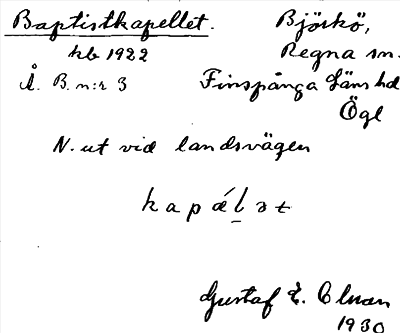 Baptistkapellet. Björkö,
kb 1922 Regna sn.
Å. B. n:r 3 Finspånga läns hd
Ögl
N. ut vid landsvägen
kapǽl̠ət
Gustaf E.
1930